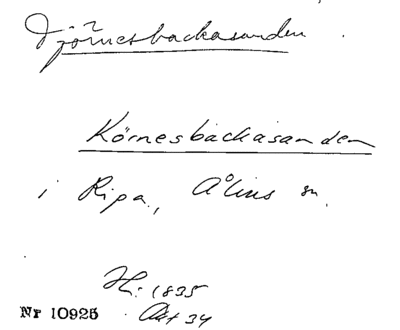 Djörnesbackasanden.
Körnesbackasanden
i Ripa, Åhus sn.
H: 1835
Akt 34
Nr 10925